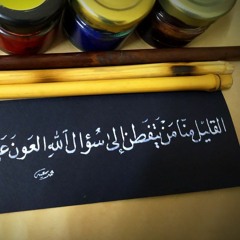 القليل منا من يتفطن إلى سؤال الله العون